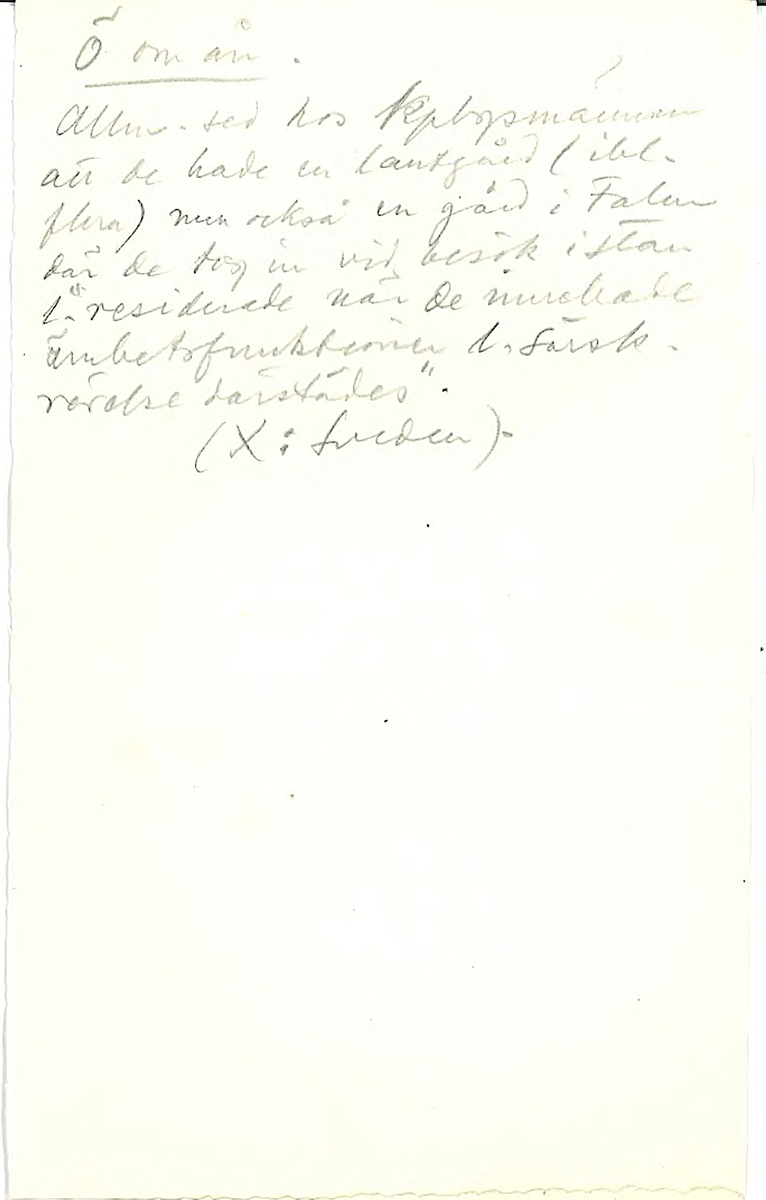 Ö om ån.
Allm. sed hos Kpbgsmännen
att de hade en lantgård (ibl.
flera) men också en gård i Falun
där de tog in vid besök i stan
l. "residerade när de innehade
ämbetsfunktioner l. särsk.
rörelse därstädes".
(X: Sveden).